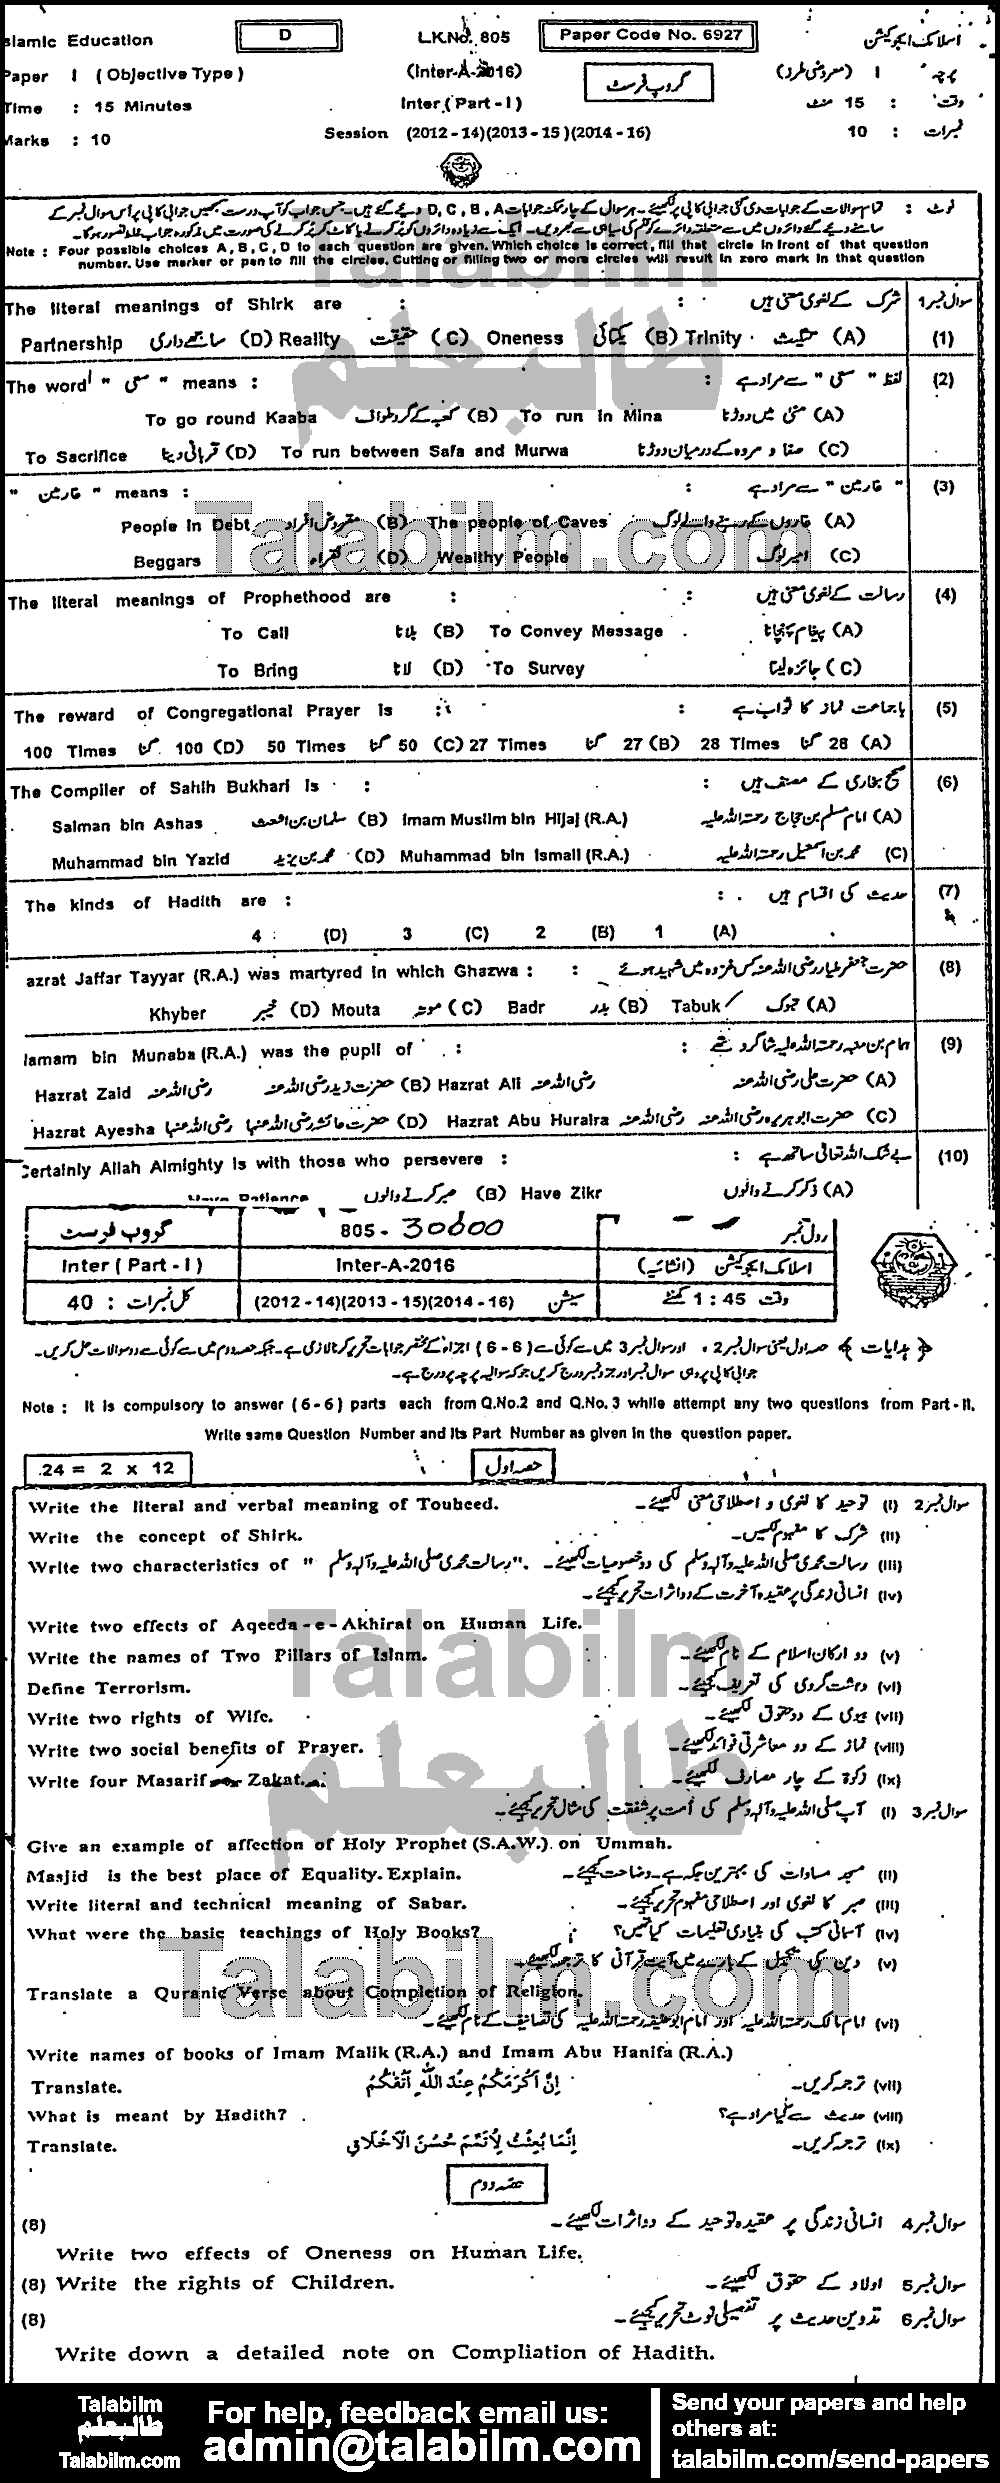 Islamic Education D L.K.No. 805 Paper Code No. 6927 اسلامک ایجوکیشن
Paper I ( Objective Type ) (Inter-A-2016) گروپ فرسٹ پرچہ I (معروضی طرز)
Time : 15 Minutes Inter ( Part - I ) وقت : 15 منٹ
Marks : 10 Session (2012 - 14)(2013 - 15)(2014 - 16) نمبرات : 10
نوٹ : تمام سوالات کے جوابات دی گئی جوابی کاپی پر لکھیئے۔ ہر سوال کے چار ممکنہ جوابات D, C, B, A دیئے گئے ہیں۔ جس جواب کو آپ درست سمجھیں جوابی کاپی پر اُس سوال نمبر کے
سامنے دیئے گئے دائروں میں سے متعلقہ دائرے کو قلم کی سیاہی سے بھر دیں۔ ایک سے زیادہ دائروں کو پُر کرنے یا کاٹ کر پُر کرنے کی صورت میں مذکورہ جواب غلط تصور ہو گا۔
Note : Four possible choices A, B, C, D to each question are given. Which choice is correct, fill that circle in front of that question
number. Use marker or pen to fill the circles. Cutting or filling two or more circles will result in zero mark in that question
The literal meanings of Shirk are : شرک کے لغوی معنی ہیں : سوال نمبر 1
Partnership ساجھے داری (D) Reality حقیقت (C) Oneness یکتائی (B) Trinity تثلیث (A) (1)
The word " سعی " means : لفظ " سعی " سے مراد ہے : (2)
To go round Kaaba کعبہ کے گرد طواف (B) To run in Mina منیٰ میں دوڑنا (A)
To Sacrifice قربانی دینا (D) To run between Safa and Murwa صفا و مروہ کے درمیان دوڑنا (C)
" غارمین " means : " غارمین " سے مراد ہے : (3)
People in Debt مقروض افراد (B) The people of Caves غاروں کے رہنے والے لوگ (A)
Beggars فقراء (D) Wealthy People امیر لوگ (C)
The literal meanings of Prophethood are : رسالت کے لغوی معنی ہیں : (4)
To Call بلانا (B) To Convey Message پیغام پہنچانا (A)
To Bring لانا (D) To Survey جائزہ لینا (C)
The reward of Congregational Prayer is : باجماعت نماز کا ثواب ہے : (5)
100 Times 100 گنا (D) 50 Times 50 گنا (C) 27 Times 27 گنا (B) 28 Times 28 گنا (A)
The Compiler of Sahih Bukhari is : صحیح بخاری کے مصنف ہیں : (6)
Salman bin Ashas سلمان بن اشعث (B) Imam Muslim bin Hijaj (R.A.) امام مسلم بن حجاج رحمتہ اللہ علیہ (A)
Muhammad bin Yazid محمد بن یزید (D) Muhammad bin Ismail (R.A.) محمد بن اسمٰعیل رحمتہ اللہ علیہ (C)
The kinds of Hadith are : حدیث کی اقسام ہیں : (7)
4 (D) 3 (C) 2 (B) 1 (A)
azrat Jaffar Tayyar (R.A.) was martyred in which Ghazwa : حضرت جعفر طیار رضی اللہ عنہ کس غزوہ میں شہید ہوئے : (8)
Khyber خیبر (D) Mouta موتہ (C) Badr بدر (B) Tabuk تبوک (A)
Hamam bin Munaba (R.A.) was the pupil of : ہمام بن منبہ رحمتہ اللہ علیہ شاگرد تھے : (9)
Hazrat Zaid حضرت زید رضی اللہ عنہ (B) Hazrat Ali حضرت علی رضی اللہ عنہ (A)
Hazrat Ayesha حضرت عائشہ رضی اللہ عنہا (D) Hazrat Abu Huraira حضرت ابو ہریرہ رضی اللہ عنہ (C)
Certainly Allah Almighty is with those who persevere : بے شک اللہ تعالیٰ ساتھ ہے : (10)
Have Patience صبر کرنے والوں (B) Have Zikr ذکر کرنے والوں (A)
گروپ فرسٹ 805 - 30000 رول نمبر
Inter ( Part - I ) Inter-A-2016 اسلامک ایجوکیشن (انشائیہ)
کل نمبرات : 40 سیشن (2012 - 14)(2013 - 15)(2014 - 16) وقت 1 : 45 گھنٹے
﴿ ہدایات ﴾ حصہ اول یعنی سوال نمبر 2 ، اور سوال نمبر 3 میں سے کوئی سے ( 6 - 6 ) اجزاء کے مختصر جوابات تحریر کرنا لازمی ہے۔ جبکہ حصہ دوم میں سے کوئی سے دو سوالات حل کریں۔
جوابی کاپی پر وہی سوال نمبر اور جزو نمبر درج کریں جو کہ سوالیہ پرچہ پر درج ہے۔
Note : It is compulsory to answer ( 6 - 6 ) parts each from Q.No.2 and Q.No. 3 while attempt any two questions from Part - II.
Write same Question Number and its Part Number as given in the question paper.
24 = 2 x 12 حصہ اول
Write the literal and verbal meaning of Touheed. سوال نمبر 2 (i) توحید کا لغوی و اصطلاحی معنی لکھیئے۔
Write the concept of Shirk. (ii) شرک کا مفہوم لکھیں۔
Write two characteristics of " رسالت محمدی صلی اللہ علیہ وآلہ وسلم ". (iii) رسالت محمدی صلی اللہ علیہ وآلہ وسلم کی دو خصوصیات لکھیئے۔
(iv) انسانی زندگی پر عقیدہ آخرت کے دو اثرات تحریر کیجیئے۔
Write two effects of Aqeeda - e - Akhirat on Human Life.
Write the names of Two Pillars of Islam. (v) دو ارکان اسلام کے نام لکھیئے۔
Define Terrorism. (vi) دہشت گردی کی تعریف کیجیئے۔
Write two rights of Wife. (vii) بیوی کے دو حقوق لکھیئے۔
Write two social benefits of Prayer. (viii) نماز کے دو معاشرتی فوائد لکھیئے۔
Write four Masarif Zakat. (ix) زکوٰۃ کے چار مصارف لکھیئے۔
سوال نمبر 3 (i) آپ صلی اللہ علیہ وآلہ وسلم کی اُمت پر شفقت کی مثال تحریر کیجیئے۔
Give an example of affection of Holy Prophet (S.A.W.) on Ummah.
Masjid is the best place of Equality. Explain. (ii) مسجد مساوات کی بہترین جگہ ہے۔ وضاحت کیجیئے۔
Write literal and technical meaning of Sabar. (iii) صبر کا لغوی اور اصطلاحی مفہوم تحریر کیجیئے۔
What were the basic teachings of Holy Books? (iv) آسمانی کتب کی بنیادی تعلیمات کیا تھیں؟
(v) دین کی تکمیل کے بارے میں آیت قرآنی کا ترجمہ لکھیئے۔
Translate a Quranic Verse about Completion of Religion.
(vi) امام مالک رحمتہ اللہ علیہ اور امام ابو حنیفہ رحمتہ اللہ علیہ کی تصانیف کے نام لکھیئے۔
Write names of books of Imam Malik (R.A.) and Imam Abu Hanifa (R.A.)
Translate. اِنَّ اَكْرَمَكُمْ عِنْدَ اللّٰهِ اَتْقٰكُمْ (vii) ترجمہ کریں۔
What is meant by Hadith? (viii) حدیث سے کیا مراد ہے؟
Translate. اِنَّمَا بُعِثْتُ لِاُتَمِّمَ حُسْنَ الْاَخْلَاقِ (ix) ترجمہ کریں۔
حصہ دوم
(8) سوال نمبر 4 انسانی زندگی پر عقیدہ توحید کے دو اثرات لکھیئے۔
Write two effects of Oneness on Human Life.
(8) Write the rights of Children. سوال نمبر 5 اولاد کے حقوق لکھیئے۔
(8) سوال نمبر 6 تدوین حدیث پر تفصیلی نوٹ تحریر کیجیئے۔
Write down a detailed note on Compliation of Hadith.
Talabilm
طالبعلم
Talabilm.com
For help, feedback email us:
admin@talabilm.com
Send your papers and help
others at:
talabilm.com/send-papers